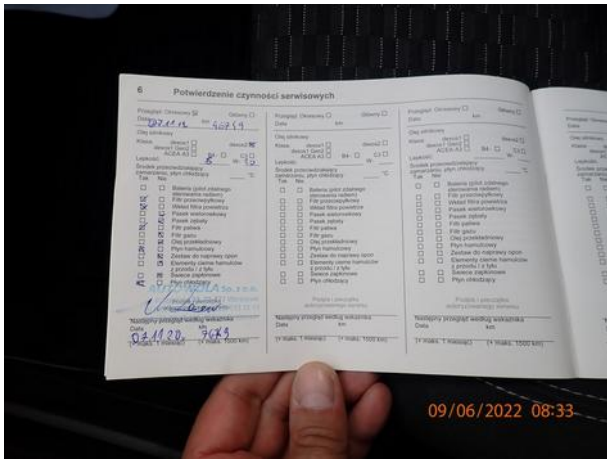 6 Potwierdzenie czynności serwisowych
Przegląd: Okresowy Główny
Data km
07.11.19 46749
Olej silnikowy
Klasa dexos1 dexos2
dexos1 Gen2
ACEA A3 B4- C3
Lepkość: W-
Środek przeciwdziałający
zamarzaniu, płyn chłodzący °C
Tak Nie
Bateria (pilot zdalnego
sterowania radiem)
Filtr przeciwpyłkowy
Wkład filtra powietrza
Pasek wielorowkowy
Pasek zębaty
Filtr paliwa
Filtr gazu
Olej przekładniowy
Płyn hamulcowy
Zestaw do naprawy opon
Elementy cierne hamulców
z przodu / z tyłu
Świece zapłonowe
Płyn chłodzący
Następny przegląd według wskaźnika
Data km
07.11.20
(+ maks. 1 miesiąc) (+ maks. 1000 km)
Przegląd: Okresowy Główny
Data km
Olej silnikowy
Klasa dexos1 dexos2
dexos1 Gen2
ACEA A3 B4- C3
Lepkość: W-
Środek przeciwdziałający
zamarzaniu, płyn chłodzący °C
Tak Nie
Bateria (pilot zdalnego
sterowania radiem)
Filtr przeciwpyłkowy
Wkład filtra powietrza
Pasek wielorowkowy
Pasek zębaty
Filtr paliwa
Filtr gazu
Olej przekładniowy
Płyn hamulcowy
Zestaw do naprawy opon
Elementy cierne hamulców
z przodu / z tyłu
Świece zapłonowe
Płyn chłodzący
Podpis i pieczątka
Następny przegląd według wskaźnika
Data km
(+ maks. 1 miesiąc) (+ maks. 1000 km)
Przegląd: Okresowy Główny
Data km
Olej silnikowy
Klasa dexos1 dexos2
dexos1 Gen2
ACEA A3 B4- C3
Lepkość: W-
Środek przeciwdziałający
zamarzaniu, płyn chłodzący °C
Tak Nie
Bateria (pilot zdalnego
sterowania radiem)
Filtr przeciwpyłkowy
Wkład filtra powietrza
Pasek wielorowkowy
Pasek zębaty
Filtr paliwa
Filtr gazu
Olej przekładniowy
Płyn hamulcowy
Zestaw do naprawy opon
Elementy cierne hamulców
z przodu / z tyłu
Świece zapłonowe
Płyn chłodzący
Podpis i pieczątka
Następny przegląd według wskaźnika
Data km
(+ maks. 1 miesiąc) (+ maks. 1000 km)
09/06/2022 08:33